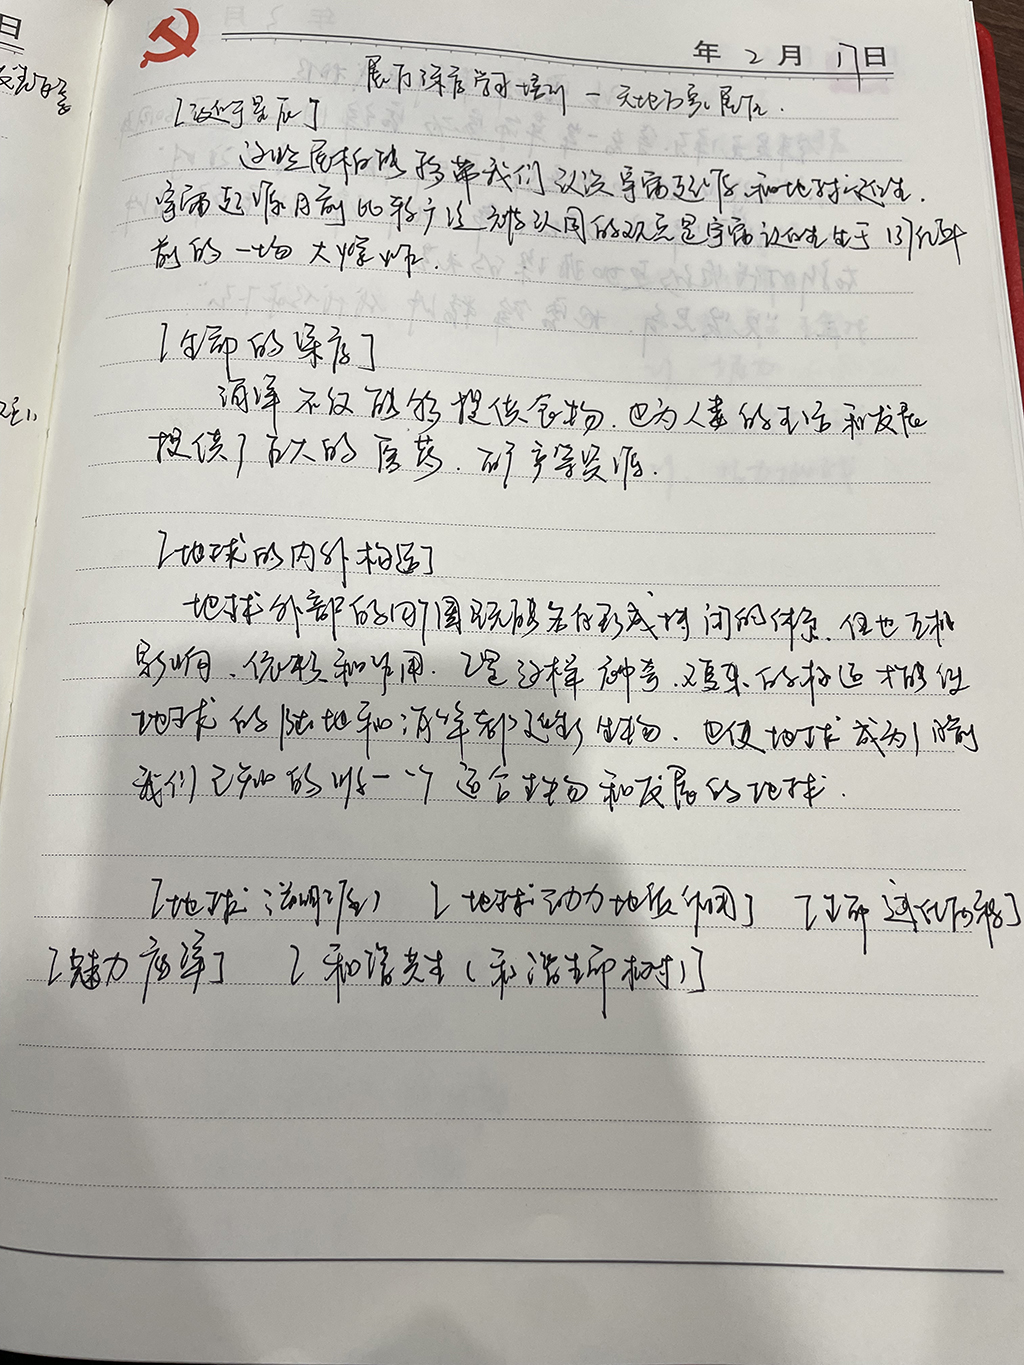 年 2 月 17 日
展厅深度学习培训 — 天地万象展厅.
[始于星辰]
这些展柜能够带我们认识宇宙起源和地球诞生.
宇宙起源目前比较广泛认同的观点是宇宙诞生于137亿年
前的一场大爆炸.
[生命的深度]
海洋不仅能够提供食物.也为人类的生活和发展
提供了巨大的医药.矿产等资源.
[地球的内外构造]
地球外部的圈既能各自形成封闭的体系.但也互相
影响.依赖和作用.正是这样神奇.复杂的构造才能使
地球的陆地和海洋都诞生生物.也使地球成为目前
我们已知的唯一一个适合生物和发展的地球.
[地球] [地球动力地质作用] [生命进化历程]
[魅力海洋] [和谐共生(和谐生命相对)]